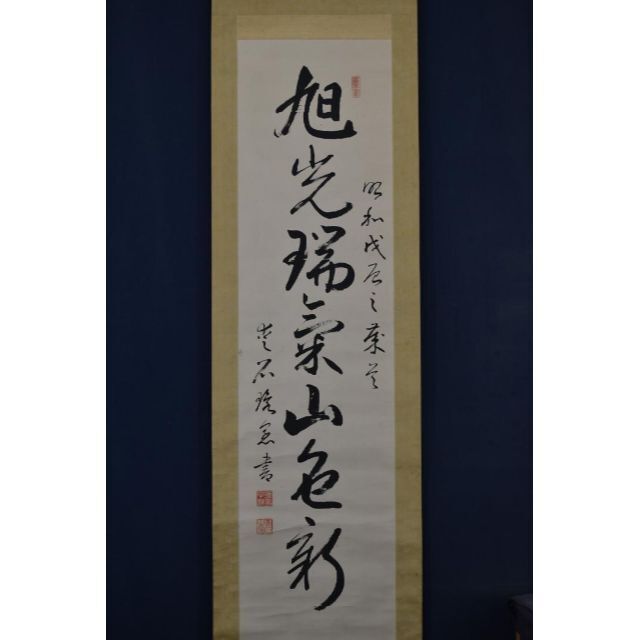 昭和戊辰之
旭光瑞氣山色新
石 書